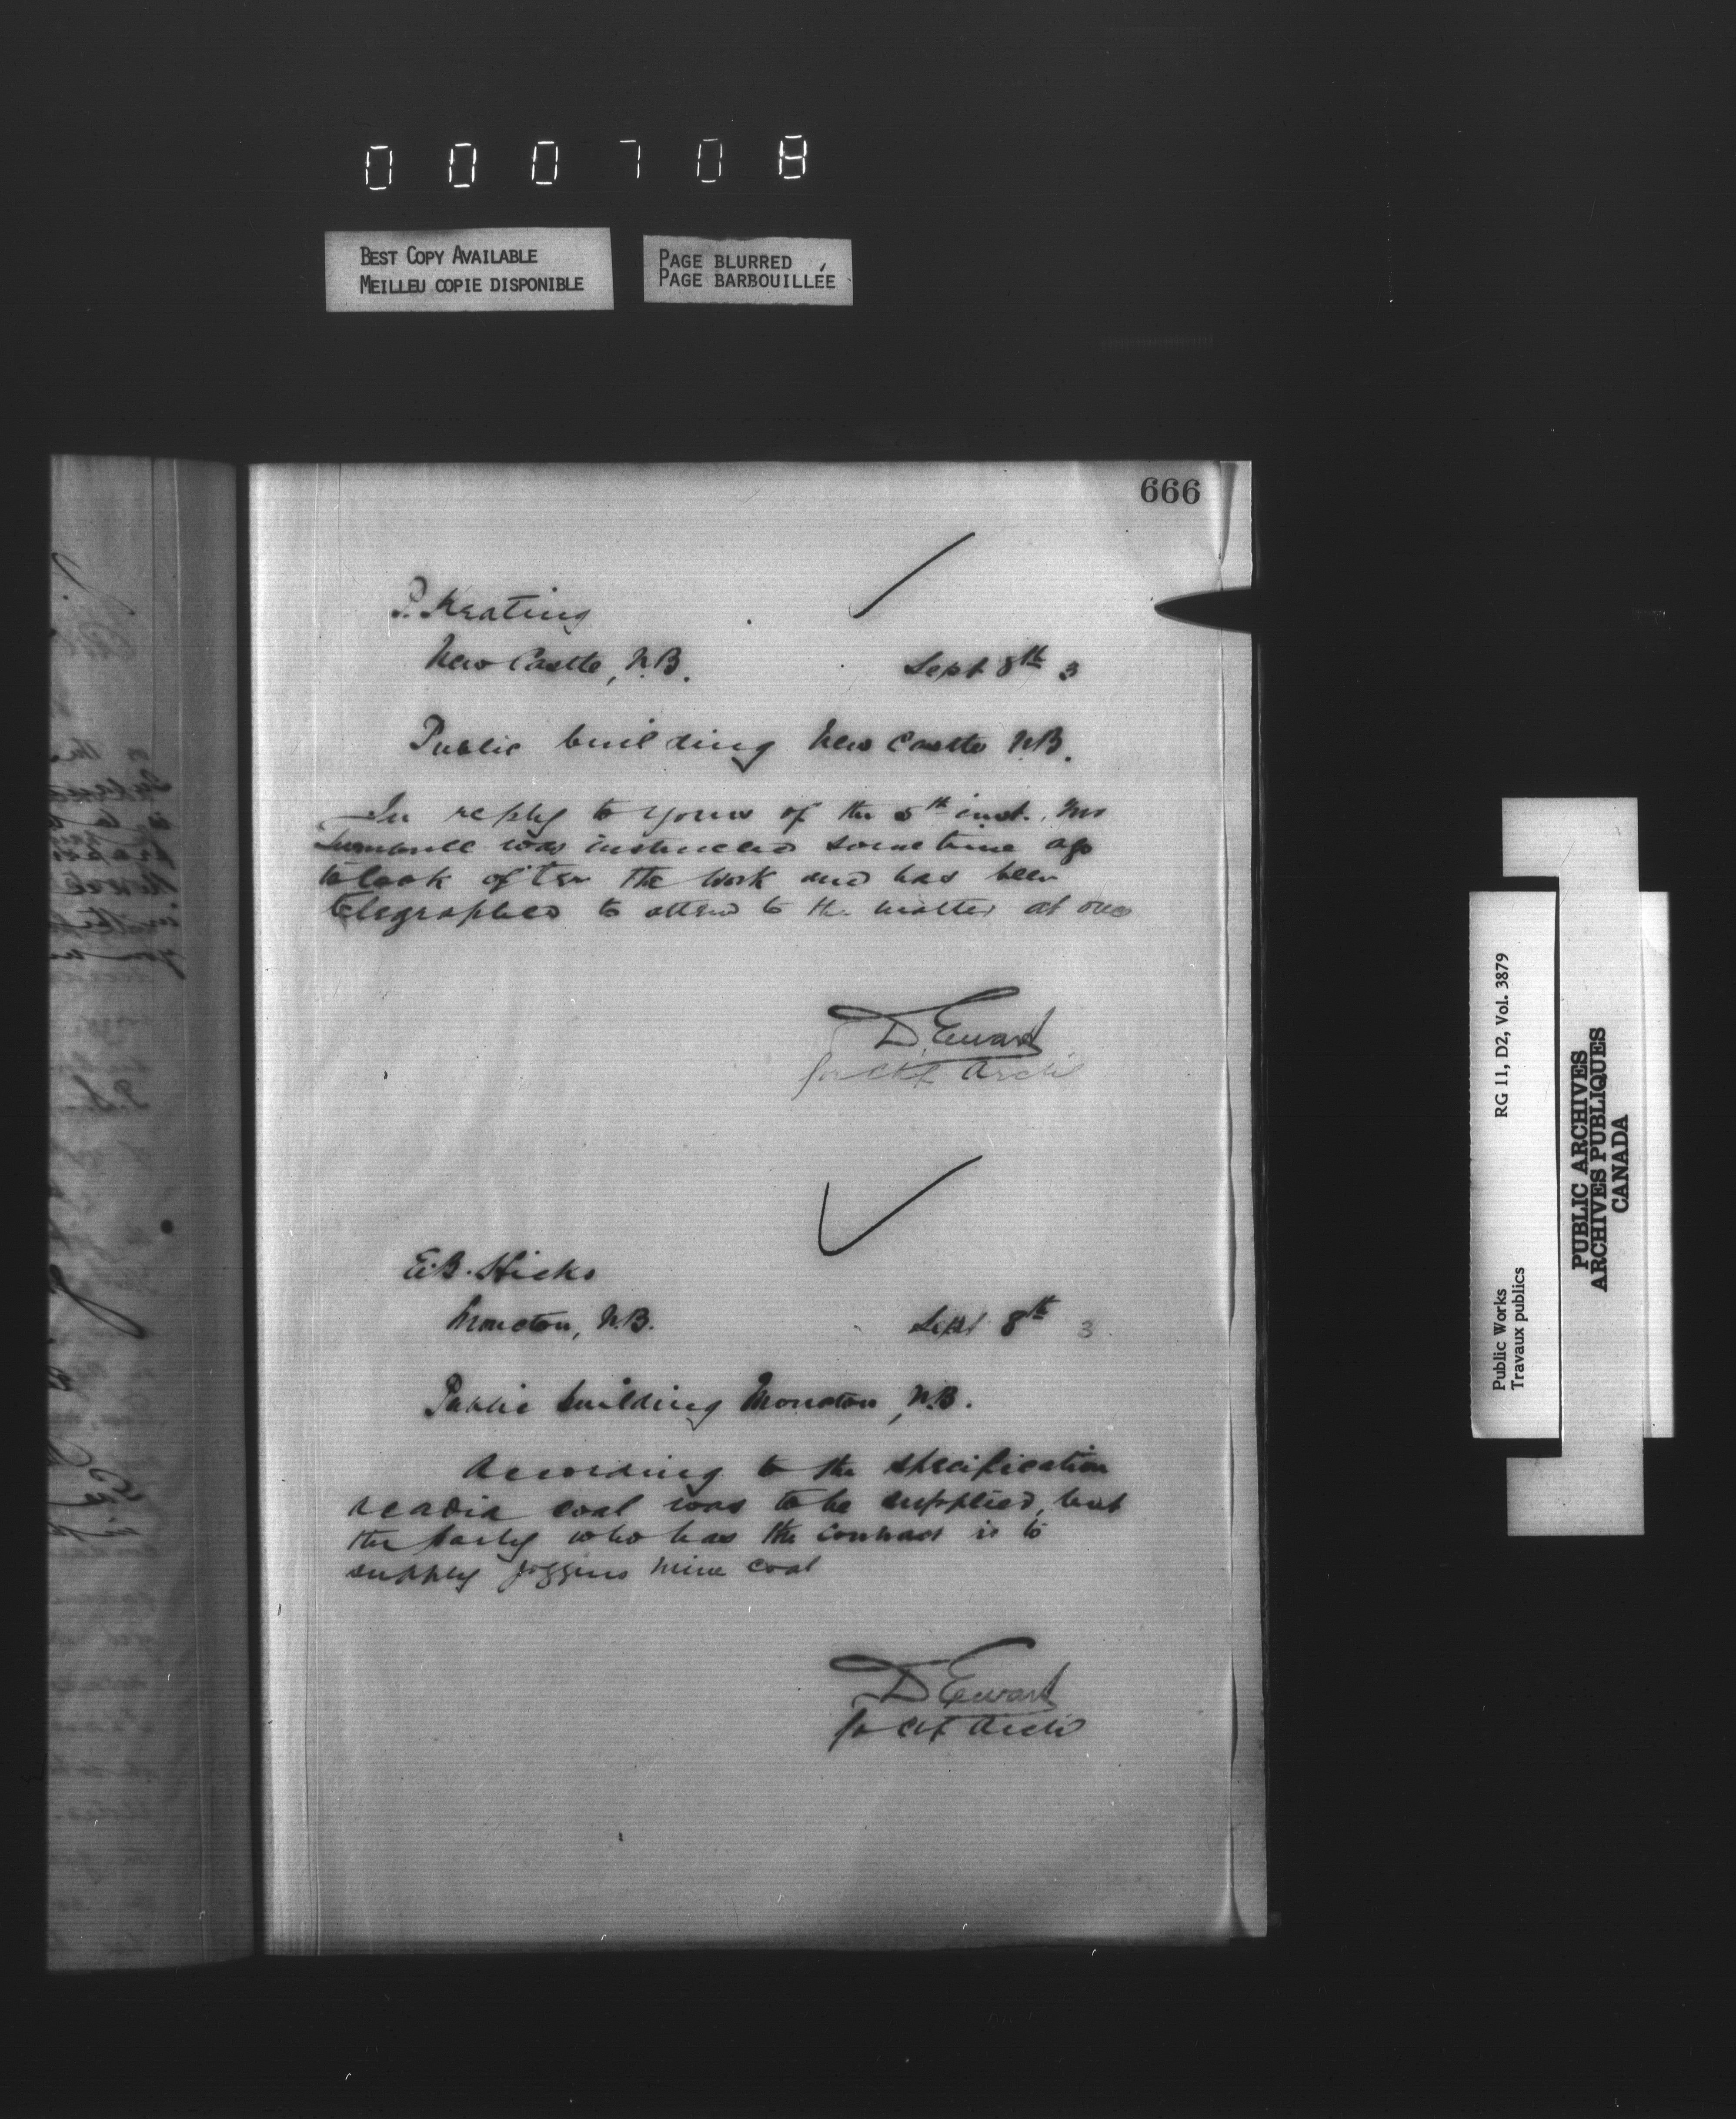 000708
BEST COPY AVAILABLE
MEILLEU COPIE DISPONIBLE
PAGE BLURRED
PAGE BARBOUILLÉE
666
P. Keating
New Castle, N.B.
Sept 8th 3
Public building New Castle N.B.
In reply to yours of the 5th inst. Mr
was instructed sometime ago
to look after the work and has been
telegraphed to attend to the matter at once
D. Ewart
for Chf Archt
E.B. Hicks
Moncton, N.B.
Sept 8th 3
Public building Moncton, N.B.
According to the specification
acadia coal was to be supplied, but
the party who has the contract is to
supply Joggins mine coal
D Ewart
for Chf Archt
Public Works
Travaux publics
RG 11, D2, Vol. 3879
PUBLIC ARCHIVES
ARCHIVES PUBLIQUES
CANADA